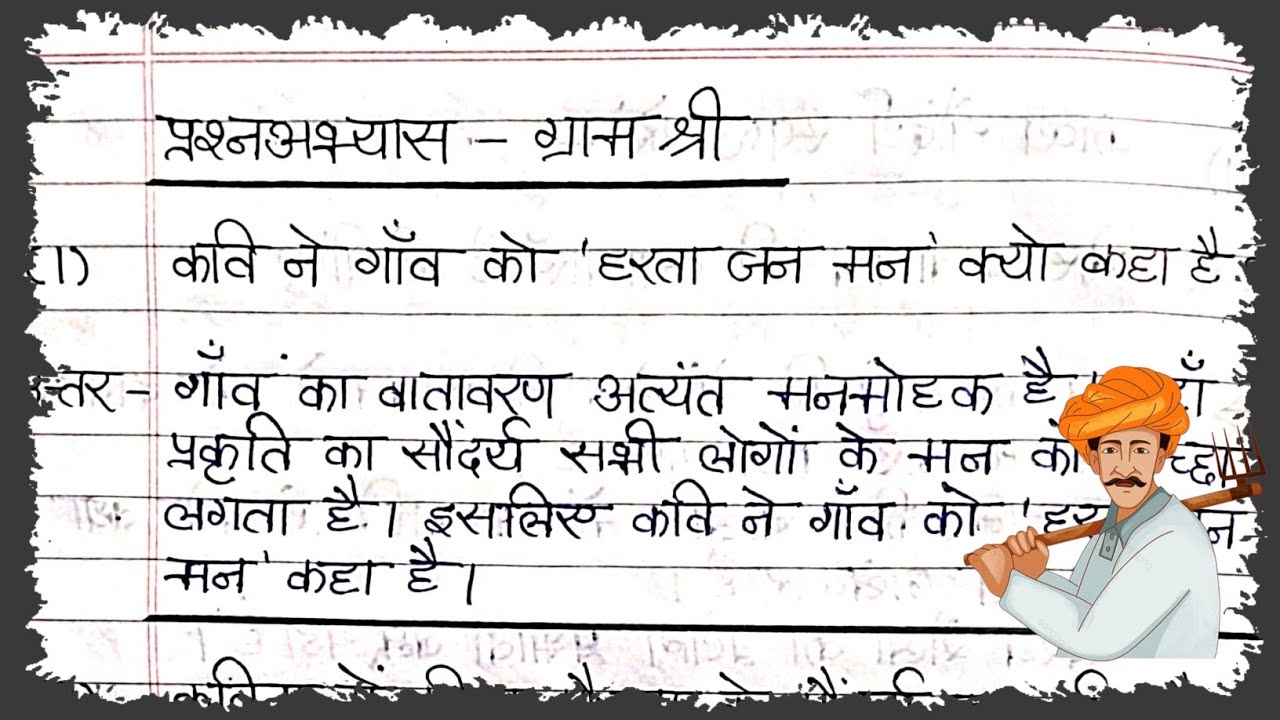 प्रश्नअभ्यास – ग्राम श्री
1) कवि ने गाँव को 'हरता जन मन' क्यो कहा है
गाँवं का वातावरण अत्यंत मनमोहक है
प्रकृति का सौंदर्य सभी लोगों के मन को
लगता है। इसलिए कवि ने गाँव को
मन' कहा है।